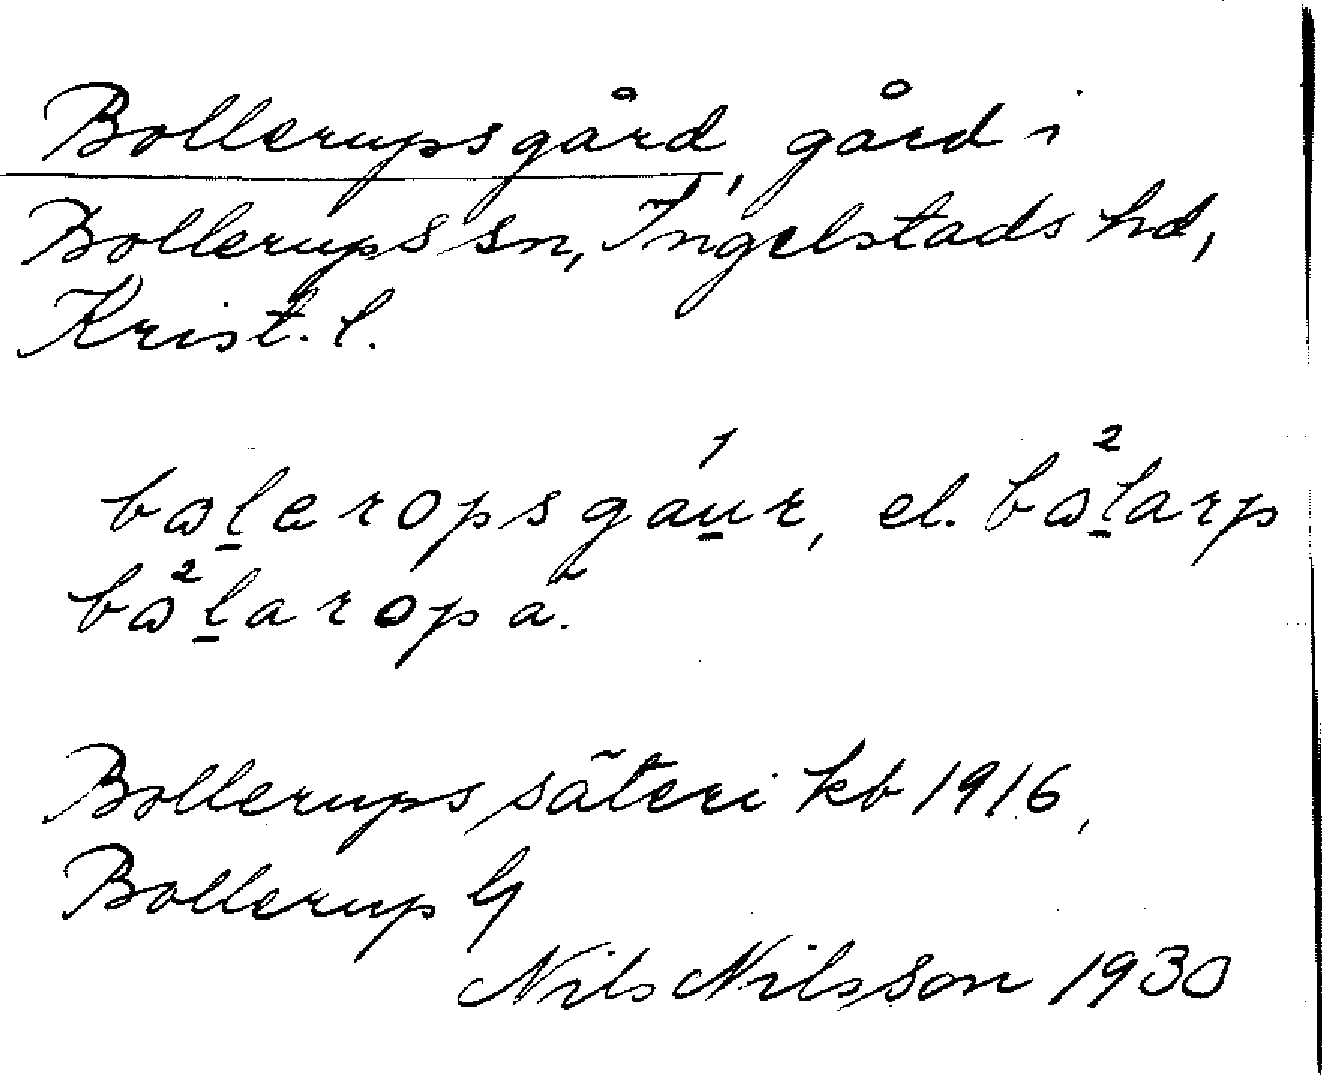 Bollerupsgård, gård i
Bollerups sn, Ingelstads hd,
Krist. l.
bɷl̲eropsgáu̲r, el. bɷ̊²l̲arp
bɷ̊²l̲aropa.
Bollerups säteri kb 1916,
Bollerup G
Nils Nilsson 1930